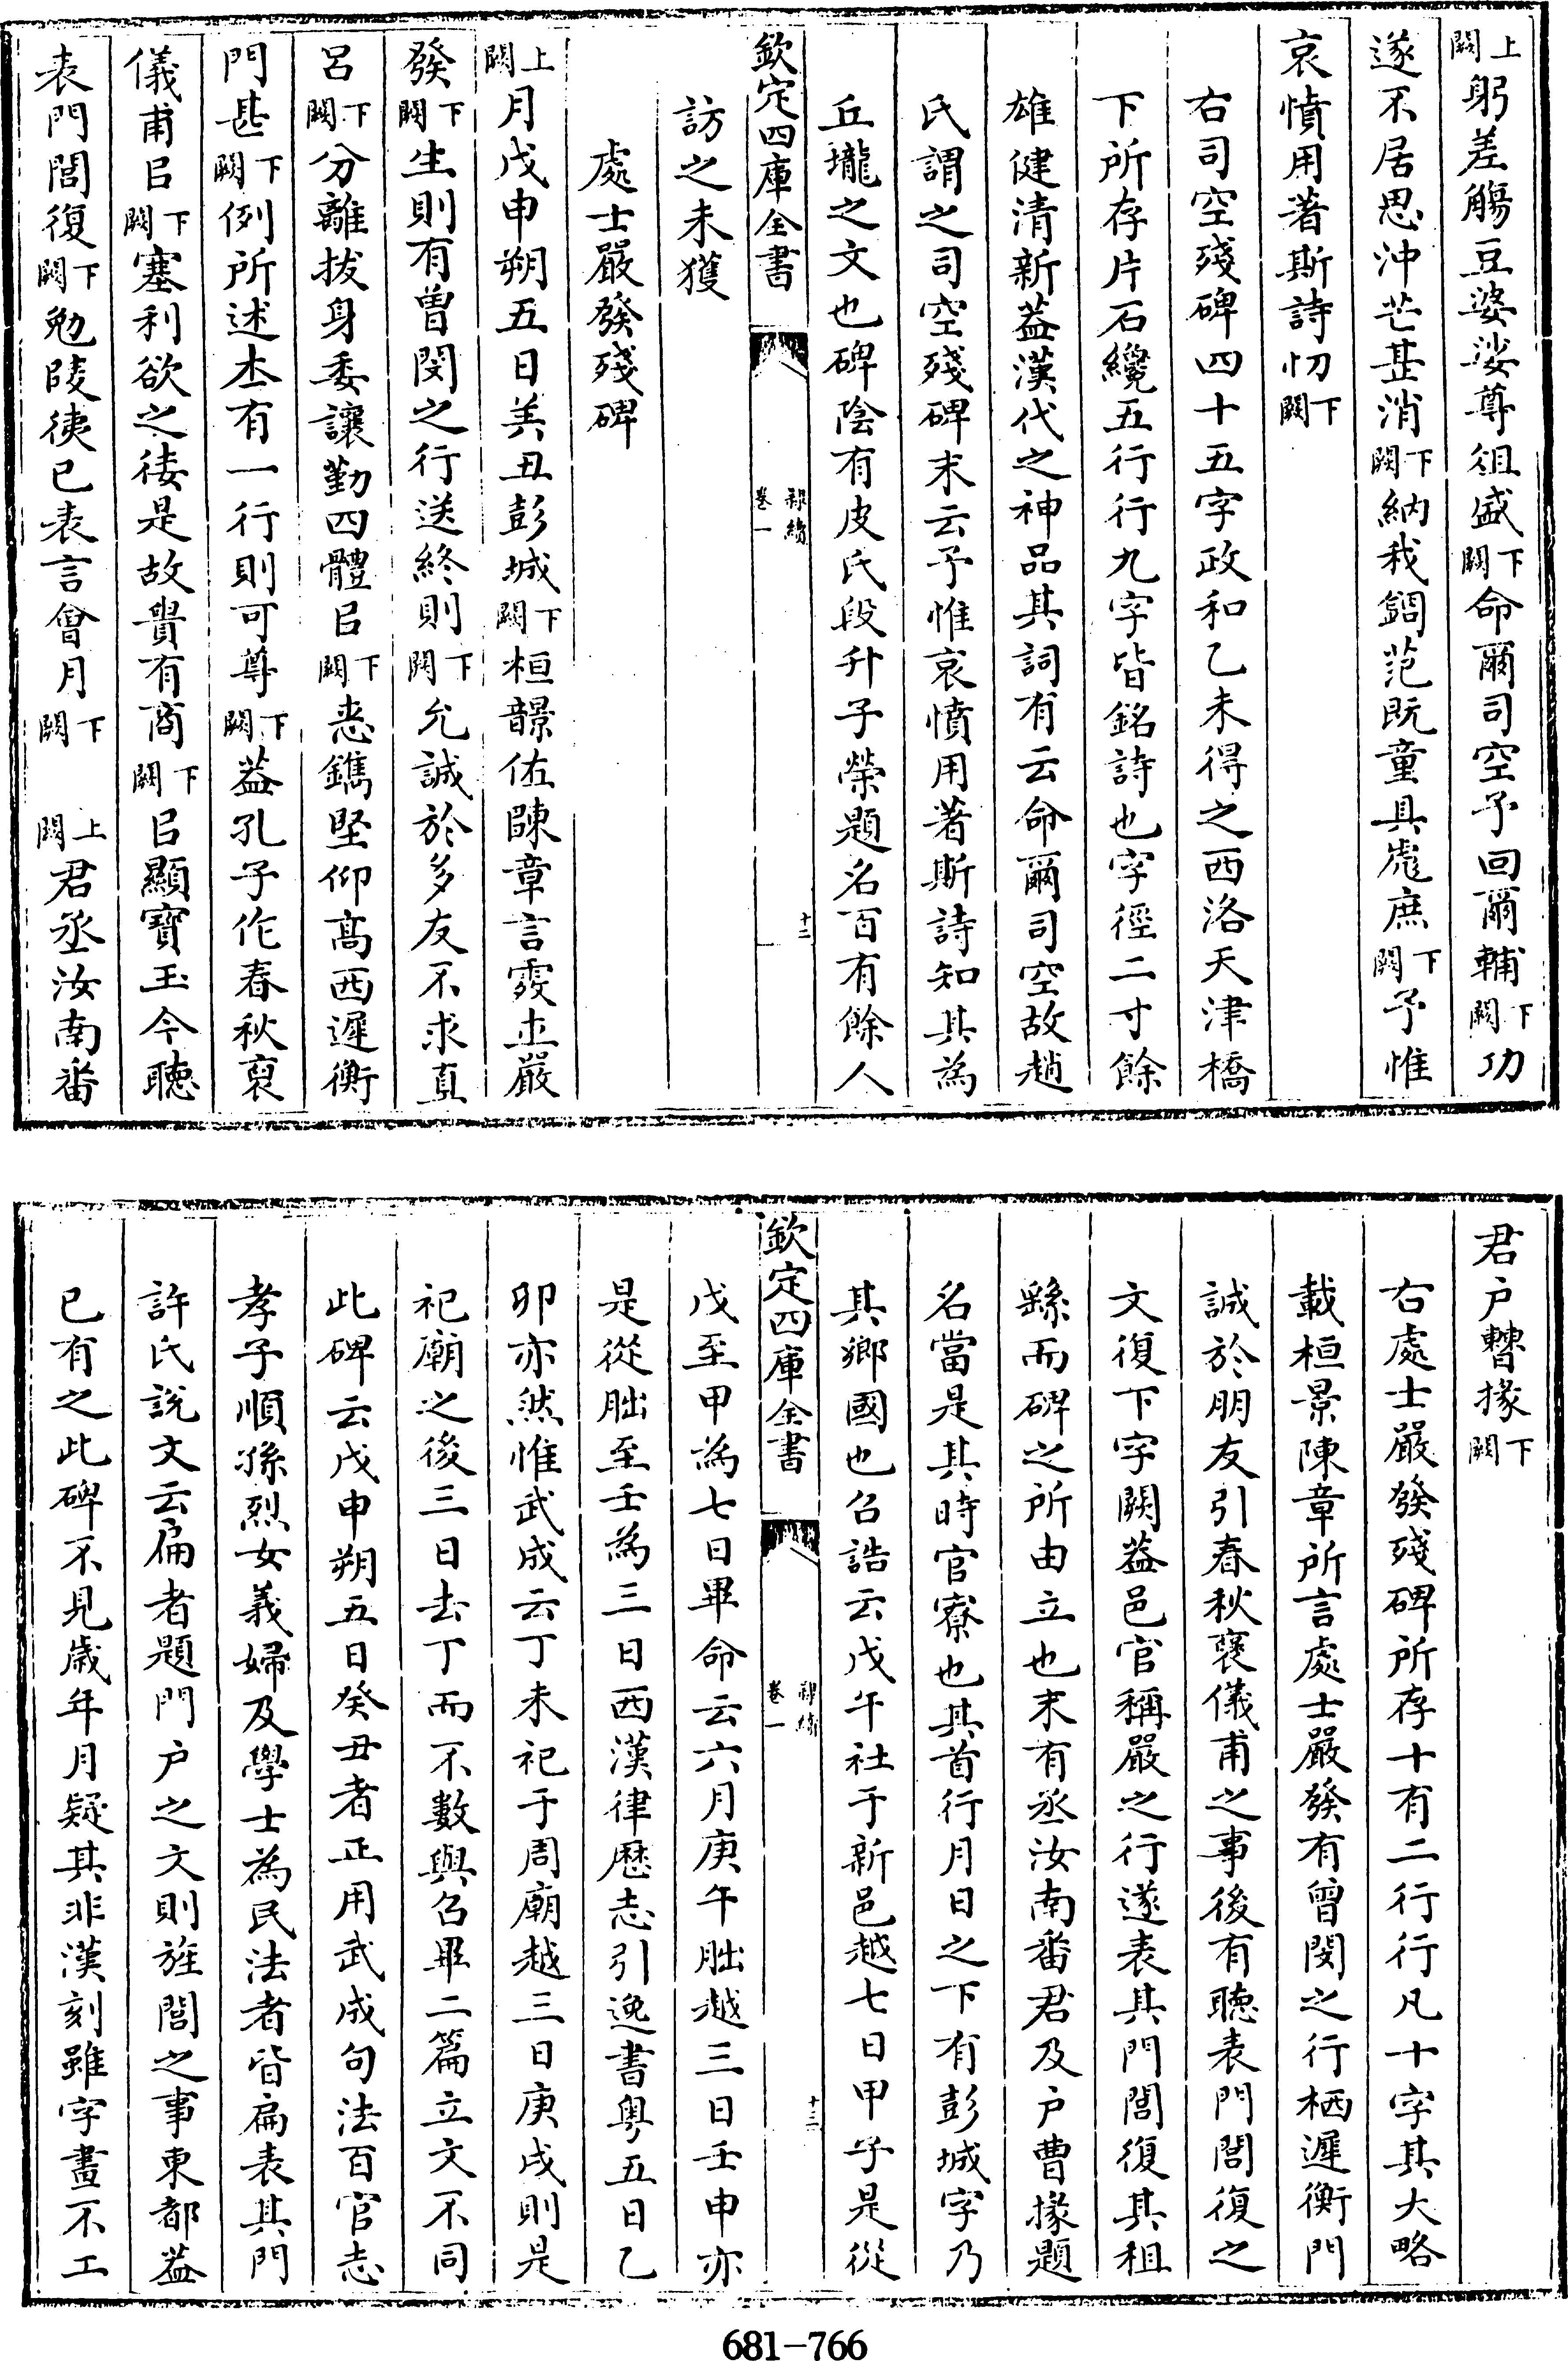 上闕躬差觴豆婆娑尊俎盛下闕命爾司空予回爾輔下闕功
遂不居思沖芒甚消下闕納我鎦范既童具𡰥庶下闕予惟
哀憤用著斯詩忉下闕
右司空殘碑四十五字政和乙未得之西洛天津橋
下所存片石纔五行行九字皆銘詩也字徑二寸餘
雄健清新葢漢代之神品其詞有云命爾司空故趙
氏謂之司空殘碑末云予惟哀憤用著斯詩知其為
丘壠之文也碑陰有皮氏段升子榮題名百有餘人
欽定四庫全書
隸續
卷一
十二
訪之未獲
處士嚴發殘碑
上闕月戊申朔五日癸丑彭城下闕桓㬌佐陳章言處士嚴
發下闕生則有曾閔之行送終則下闕允誠於多友不求直
呂下闕分離拔身委讓勤四體㠯下闕恚鐫堅仰高西遲衡
門甚下闕例所述本有一行則可尊下闕葢孔子作春秋裒
儀甫㠯下闕塞利欲之倿是故貴有商下闕㠯顯寶玉今聽
表門閭復下闕勉陵俠已表言會月下闕 上闕君丞汝南番
君户曹掾下闕
右處士嚴發殘碑所存十有二行行凡十字其大略
載桓景陳章所言處士嚴發有曾閔之行栖遲衡門
誠於朋友引春秋襃儀甫之事後有聽表門閭復之
文復下字闕葢邑官稱嚴之行遂表其門閭復其租
繇而碑之所由立也末有丞汝南番君及户曹掾題
名當是其時官寮也其首行月日之下有彭城字乃
其鄉國也召誥云戊午社于新邑越七日甲子是從
欽定四庫全書
隸續
卷一
十三
戊至甲為七日畢命云六月庚午朏越三日壬申亦
是從朏至壬為三日西漢律歴志引逸書粤五日乙
卯亦然惟武成云丁未祀于周廟越三日庚戌則是
祀廟之後三日去丁而不數與召畢二篇立文不同
此碑云戊申朔五日癸丑者正用武成句法百官志
孝子順孫烈女義婦及學士為民法者皆扁表其門
許氏說文云扁者題門户之文則旌閭之事東都葢
已有之此碑不見歲年月疑其非漢刻雖字畫不工
681-766